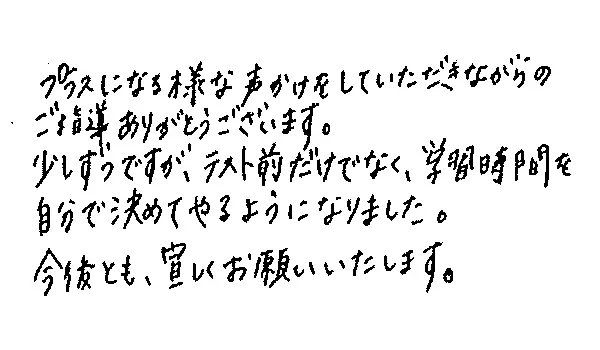 プラスになる様な声かけをしていただきながらの
ご指導ありがとうございます。
少しずつですが、テスト前だけでなく、学習時間を
自分で決めてやるようになりました。
今後とも、宜しくお願いいたします。